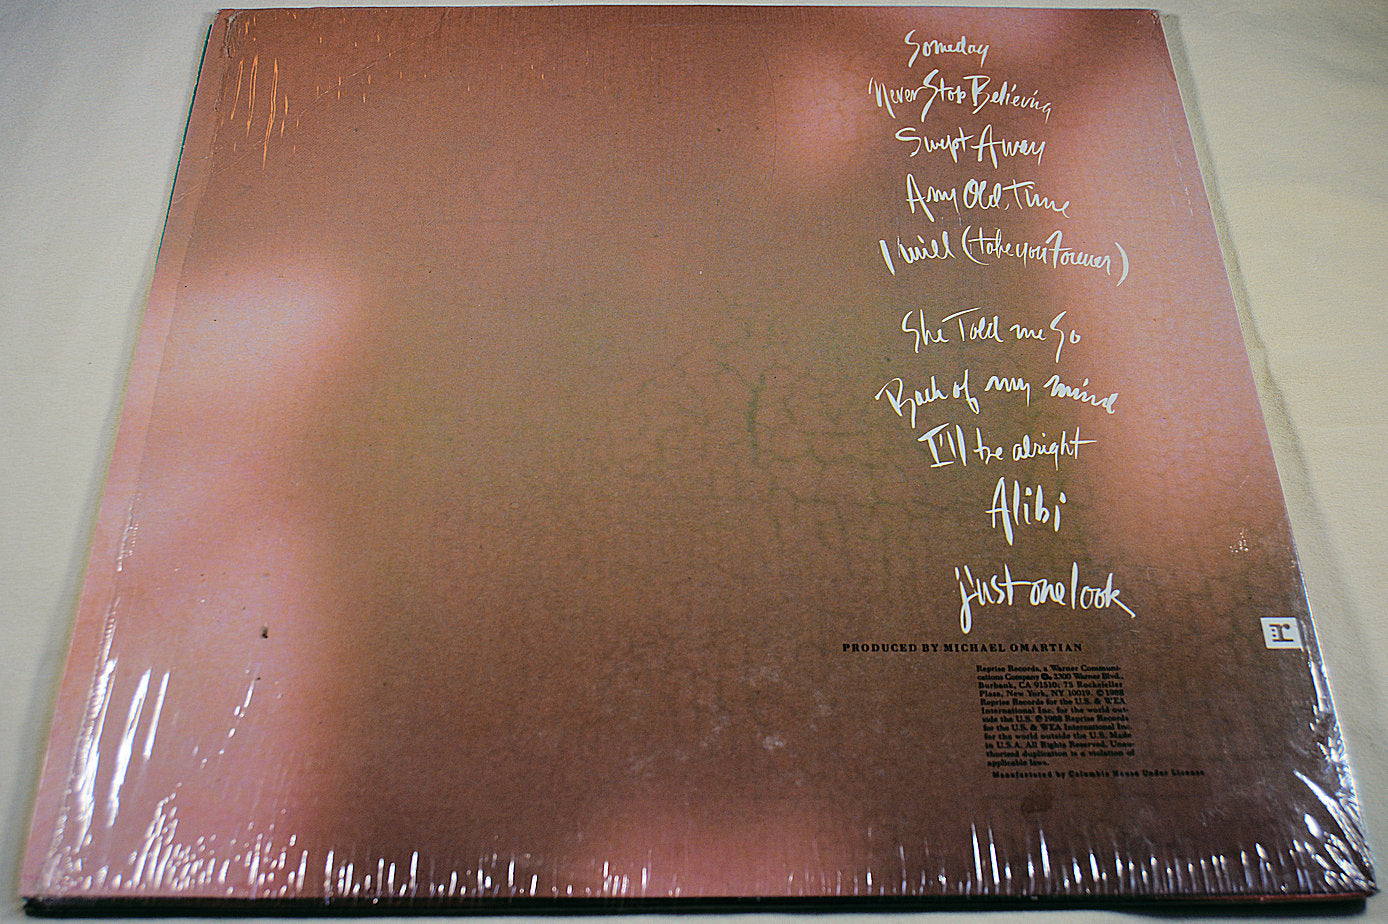 Someday
Never Stop Believing
Swept Away
Any Old Time
I will (take you Forever)
She Told me So
Back of my mind
I'll be alright
Alibi
just one look
PRODUCED BY MICHAEL OMARTIAN
r
Reprise Records, a Warner Communi-
cations Company ℗, 3300 Warner Blvd.,
Burbank, CA 91510; 75 Rockefeller
Plaza, New York, NY 10019. © 1988
Reprise Records for the U.S. & WEA
International Inc. for the world out-
side the U.S. ℗ 1988 Reprise Records
for the U.S. & WEA International Inc.
for the world outside the U.S. Made
in U.S.A. All Rights Reserved. Unau-
thorized duplication is a violation of
applicable laws.
Manufactured by Columbia House Under License